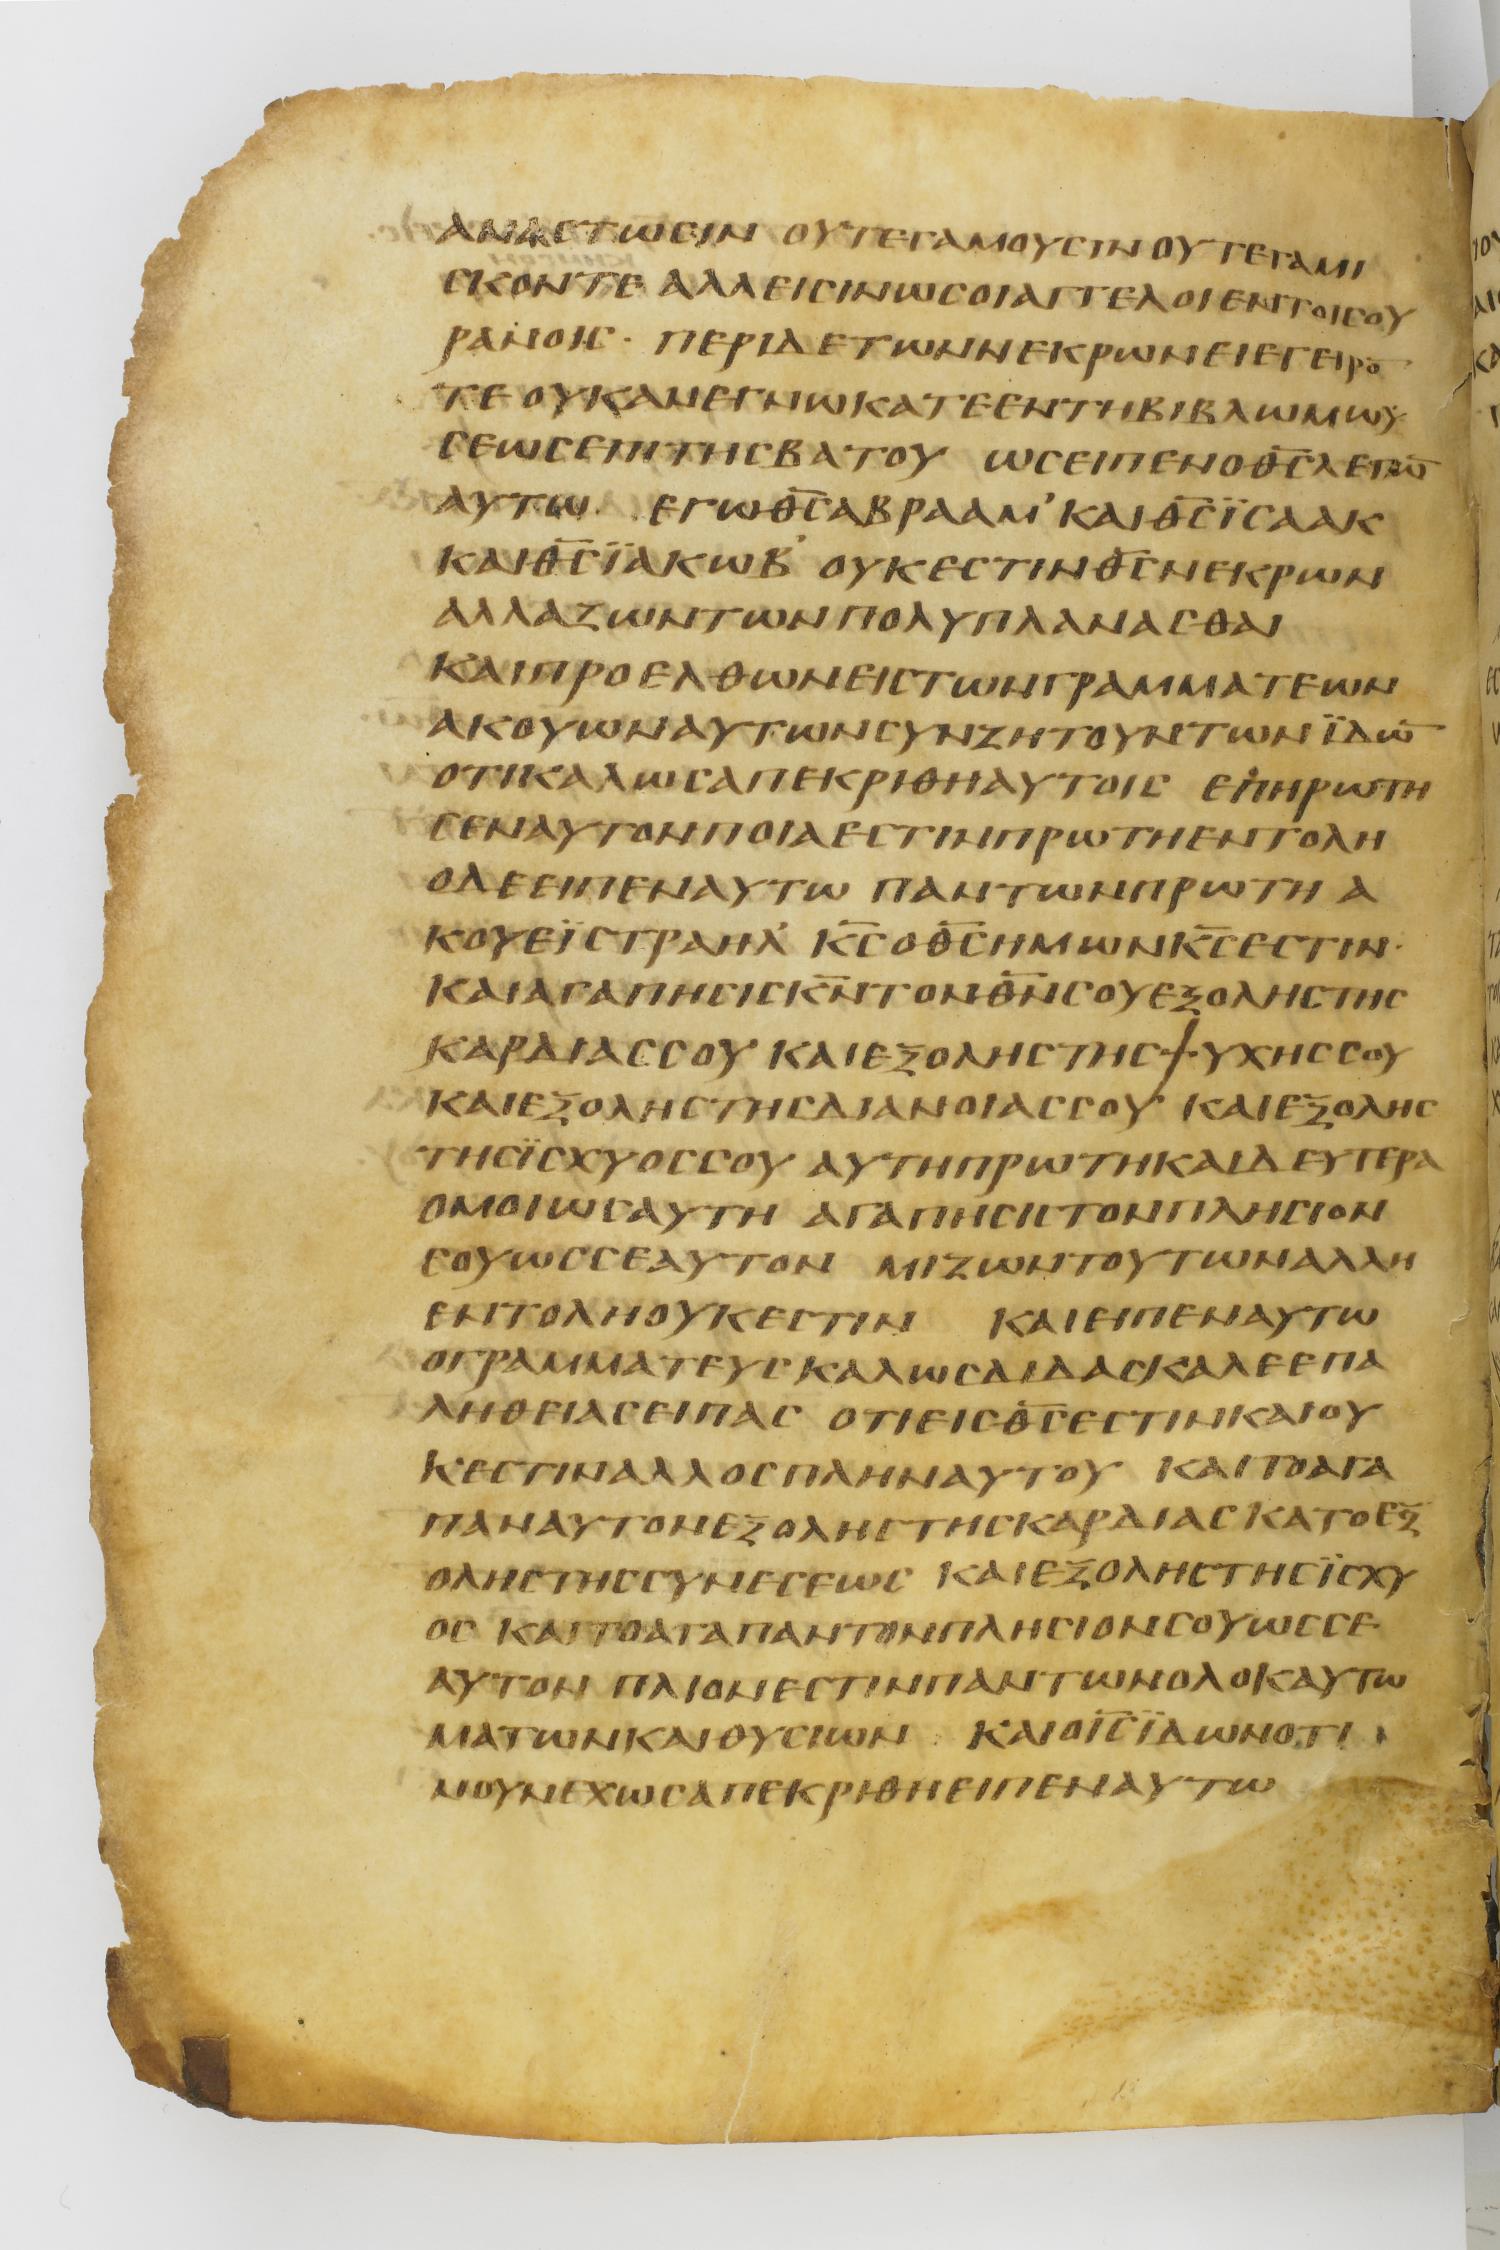 ΑΝΑΣΤΩΣΙΝ ΟΥΤΕΓΑΜΟΥΣΙΝΟΥΤΕΓΑΜΙ
ΣΚΟΝΤΕ ΑΛΛΕΙΣΙΝΩΣΟΙΑΓΓΕΛΟΙΕΝΤΟΙΣΟΥ
ΡΑΝΟΙΣ · ΠΕΡΙΔΕΤΩΝΝΕΚΡΩΝΕΙΕΓΕΙΡΟ̅
ΤΕ ΟΥΚΑΝΕΓΝΩΚΑΤΕΕΝΤΗΒΙΒΛΩΜΩΥ
ΣΕΩΣΕΠΙΤΗΣΒΑΤΟΥ ΩΣΕΙΠΕΝΟΘ̅Σ̅ΛΕΓΩ̅
ΑΥΤΩ ΕΓΩΘ̅Σ̅ΑΒΡΑΑΜ’ ΚΑΙΘ̅Σ̅ΪΣΑΑΚ
ΚΑΙΘ̅Σ̅ΪΑΚΩΒ’ ΟΥΚΕΣΤΙΝΘ̅Σ̅ΝΕΚΡΩΝ
ΑΛΛΑΖΩΝΤΩΝΠΟΛΥΠΛΑΝΑΣΘΑΙ
ΚΑΙΠΡΟΕΛΘΩΝΕΙΣΤΩΝΓΡΑΜΜΑΤΕΩΝ
ΑΚΟΥΩΝΑΥΤΩΝΣΥΝΖΗΤΟΥΝΤΩΝΪΔΩ̅
ΟΤΙΚΑΛΩΣΑΠΕΚΡΙΘΗΑΥΤΟΙΣ ΕΠΗΡΩΤΗ
ΣΕΝΑΥΤΟΝΠΟΙΑΕΣΤΙΝΠΡΩΤΗΕΝΤΟΛΗ
ΟΔΕΕΙΠΕΝΑΥΤΩ ΠΑΝΤΩΝΠΡΩΤΗ Α
ΚΟΥΕΪΣΤΡΑΗΛ’ Κ̅Σ̅ΟΘ̅Σ̅ΗΜΩΝΚ̅Σ̅ΕΣΤΙΝ·
ΚΑΙΑΓΑΠΗΣΙΣΚ̅Ν̅ΤΟΝΘ̅Ν̅ΣΟΥΕΞΟΛΗΣΤΗΣ
ΚΑΡΔΙΑΣΣΟΥ ΚΑΙΕΞΟΛΗΣΤΗΣΨΥΧΗΣΣΟΥ
ΚΑΙΕΞΟΛΗΣΤΗΣΔΙΑΝΟΙΑΣΣΟΥ ΚΑΙΕΞΟΛΗΣ
ΤΗΣΪΣΧΥΟΣΣΟΥ ΑΥΤΗΠΡΩΤΗΚΑΙΔΕΥΤΕΡΑ
ΟΜΟΙΩΣΑΥΤΗ ΑΓΑΠΗΣΙΣΤΟΝΠΛΗΣΙΟΝ
ΣΟΥΩΣΣΕΑΥΤΟΝ ΜΙΖΩΝΤΟΥΤΩΝΑΛΛΗ
ΕΝΤΟΛΗΟΥΚΕΣΤΙΝ ΚΑΙΕΙΠΕΝΑΥΤΩ
ΟΓΡΑΜΜΑΤΕΥΣΚΑΛΩΣΔΙΔΑΣΚΑΛΕΕΠΑ
ΛΗΘΕΙΑΣΕΙΠΑΣ ΟΤΙΕΙΣΘ̅Σ̅ΕΣΤΙΝΚΑΙΟΥ
ΚΕΣΤΙΝΑΛΛΟΣΠΛΗΝΑΥΤΟΥ ΚΑΙΤΟΑΓΑ
ΠΑΝΑΥΤΟΝΕΞΟΛΗΣΤΗΣΚΑΡΔΙΑΣ ΚΑΤΟΕΞ
ΟΛΗΣΤΗΣΣΥΝΕΣΕΩΣ ΚΑΙΕΞΟΛΗΣΤΗΣΪΣΧΥ
ΟΣ ΚΑΙΤΟΑΓΑΠΑΝΤΟΝΠΛΗΣΙΟΝΣΟΥΩΣΣΕ
ΑΥΤΟΝ ΠΛΙΟΝΕΣΤΙΝΠΑΝΤΩΝΟΛΟΚΑΥΤΩ
ΜΑΤΩΝΚΑΙΘΥΣΙΩΝ ΚΑΙΟΙ̅Σ̅ΪΔΩΝΟΤΙ
ΝΟΥΝΕΧΩΣΑΠΕΚΡΙΘΗΕΙΠΕΝΑΥΤΩ